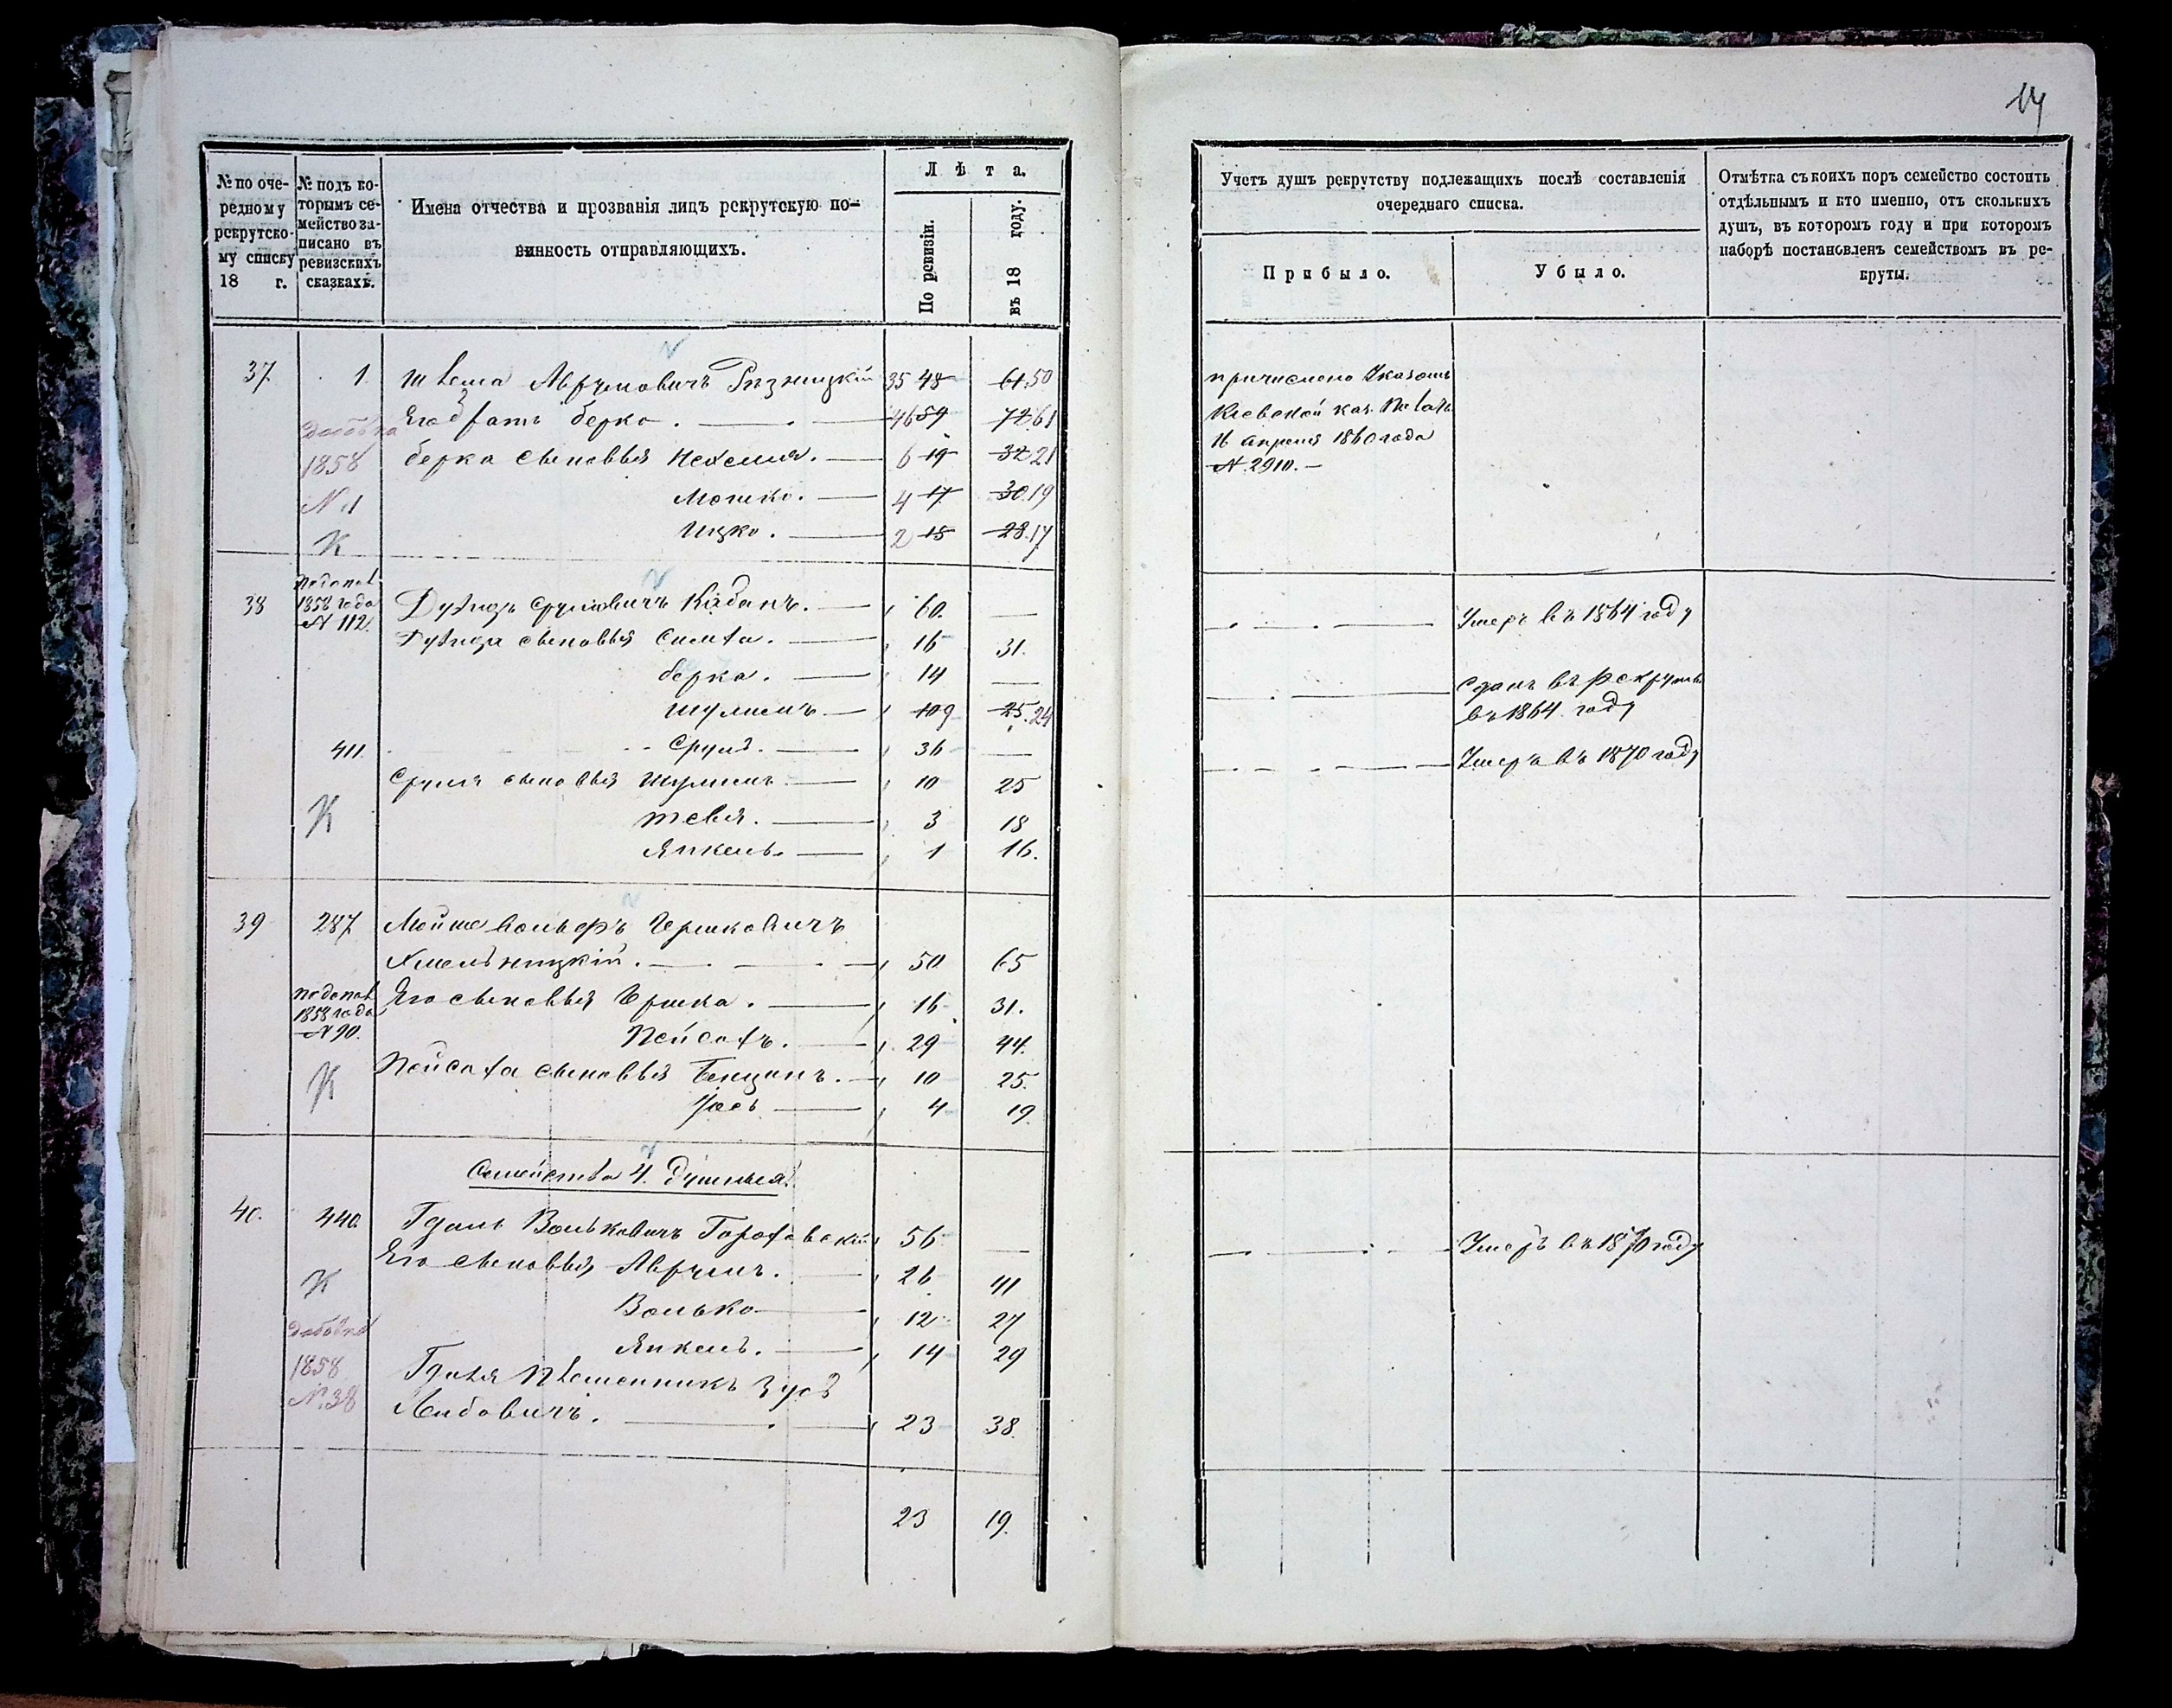 14
№ по оче-
редному
рекрутско-
му списку
18 г.
№ подъ ко-
торымъ се-
мейство за-
писано въ
ревизскихъ
сказкахъ.
Имена отчества и прозванія лицъ рекрутскую по-
винность отправляющихъ.
Лѣта.
По ревизіи.
въ 18 году.
Учетъ душъ рекрутству подлежащихъ послѣ составленія
очереднаго списка.
Прибыло.
Убыло.
Отмѣтка съ коихъ поръ семейство состоитъ
отдѣльнымъ и кто именно, отъ сколькихъ
душъ, въ котором году и при котором
наборѣ постановленъ семействомъ въ ре-
круты.
37 1. Аврумовичъ Ризницкій 35 48 61.50
Его братъ Берко. 46 59 72.61
Берка сыновья Нехемия. 6 19 32 21
Мошко. 4 17 30.19
Ицко. 2 15 28.17
1858
N 1
К
причислено Указомъ
Кіевской каз. Палаты
16 апреля 1860 года
№ 2910.
38 1858 года
№ 112.
Срулиовичъ Кабанъ. 60. — Умеръ въ 1864 году
сыновья Симха. 16 31.
Берка. 14 — Сданъ въ рекруты
въ 1864 году
Шулимъ. 10 9 25.24
411. Сруль. 36 — Умеръ въ 1870 году
Сруля сыновья Шулимъ 10 25
Тевья. 3 18
Янкель. 1 16.
К
39 287 Мойше Вольфъ Гершковичъ
Хмельницкій. 50 65
1858 года
№ 90.
Его сыновья Гершка. 16 31.
Пейсахъ. 29 44.
Пейсаха сыновья Бенционъ. 10 25.
Іосъ 4 19.
К
Семейства 4. душныя.
40. 440. Гдаль Вольковичъ Гороховскій 56 — Умеръ въ 1870 году
Его сыновья Аврумъ. 26 41
Волько 12 27
Янкель. 14 29
К
1858
№ 38
Гдаля племенникъ Зусь
Лейбовичъ. 23 38.
23 19.